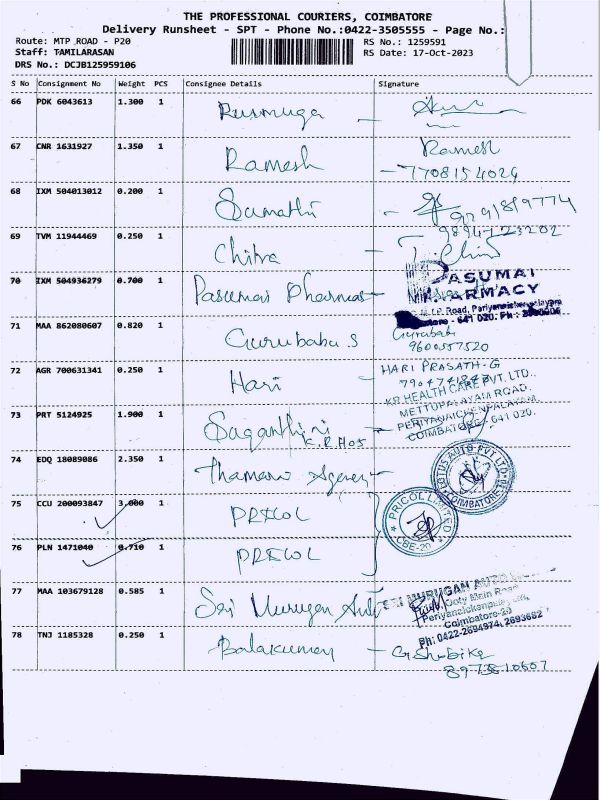 THE PROFESSIONAL COURIERS, COIMBATORE
Delivery Runsheet - SPT - Phone No.:0422-3505555 - Page No.:
Route: MTP ROAD - P20
RS No.: 1259591
Staff: TAMILARASAN
RS Date: 17-Oct-2023
DRS No.: DCJB125959106
S No Consignment No Weight PCS Consignee Details Signature
66 PDK 6043613 1.300 1
67 CNR 1631927 1.350 1 Ramesh Ramesh
7708154024
68 IXM 504013012 0.200 1 Sumathi
69 TVM 11944469 0.250 1 Chitra
70 IXM 504936279 0.700 1 Pasumai PASUMAI
PHARMACY
641 020. Ph:
71 MAA 862080607 0.820 1 Gurubabu S Gurubabu
9600557520
72 AGR 700631341 0.250 1 Hari HARI PRASATH-G
KR HEALTH CARE PVT. LTD.,
METTUPALAYAM ROAD,
73 PRT 5124925 1.900 1 PERIYANAICKENPALAYAM,
COIMBATORE - 641 020.
74 EDQ 18089086 2.350 1 LOTUS AUTO PVT LTD
COIMBATORE
75 CCU 200093847 3.000 1 PRICOL PRICOL LIMITED
CBE-20
76 PLN 1471040 0.710 1 PRICOL
77 MAA 103679128 0.585 1 Sri Murugan Auto SRI MURUGAN AUTO
Ooty Main Road
Coimbatore-20
Ph: 0422-2694974, 2693662
78 TNJ 1185328 0.250 1 Balakumar